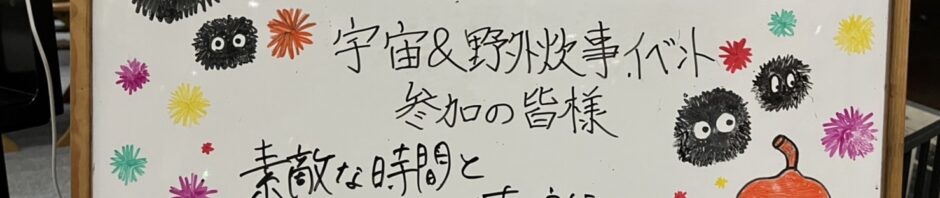 宇宙&野外炊事イベント
参加の皆様
素敵な時間と